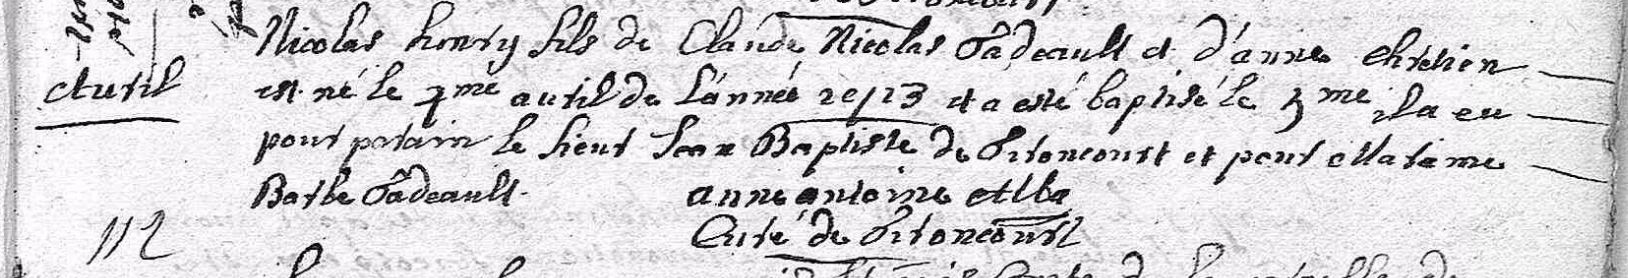 Nicolas henry fils de Claude Nicolas Gadeault et d'anne Chretien
Auril
est né le me auril de L'année et a esté baptisé le 5me il a eu
pour parain le sieur Jean Baptiste de Gironcourt et pour Marainne
Barbe Gadeault.
anne antoine Alba
112
Curé de Gironcourt